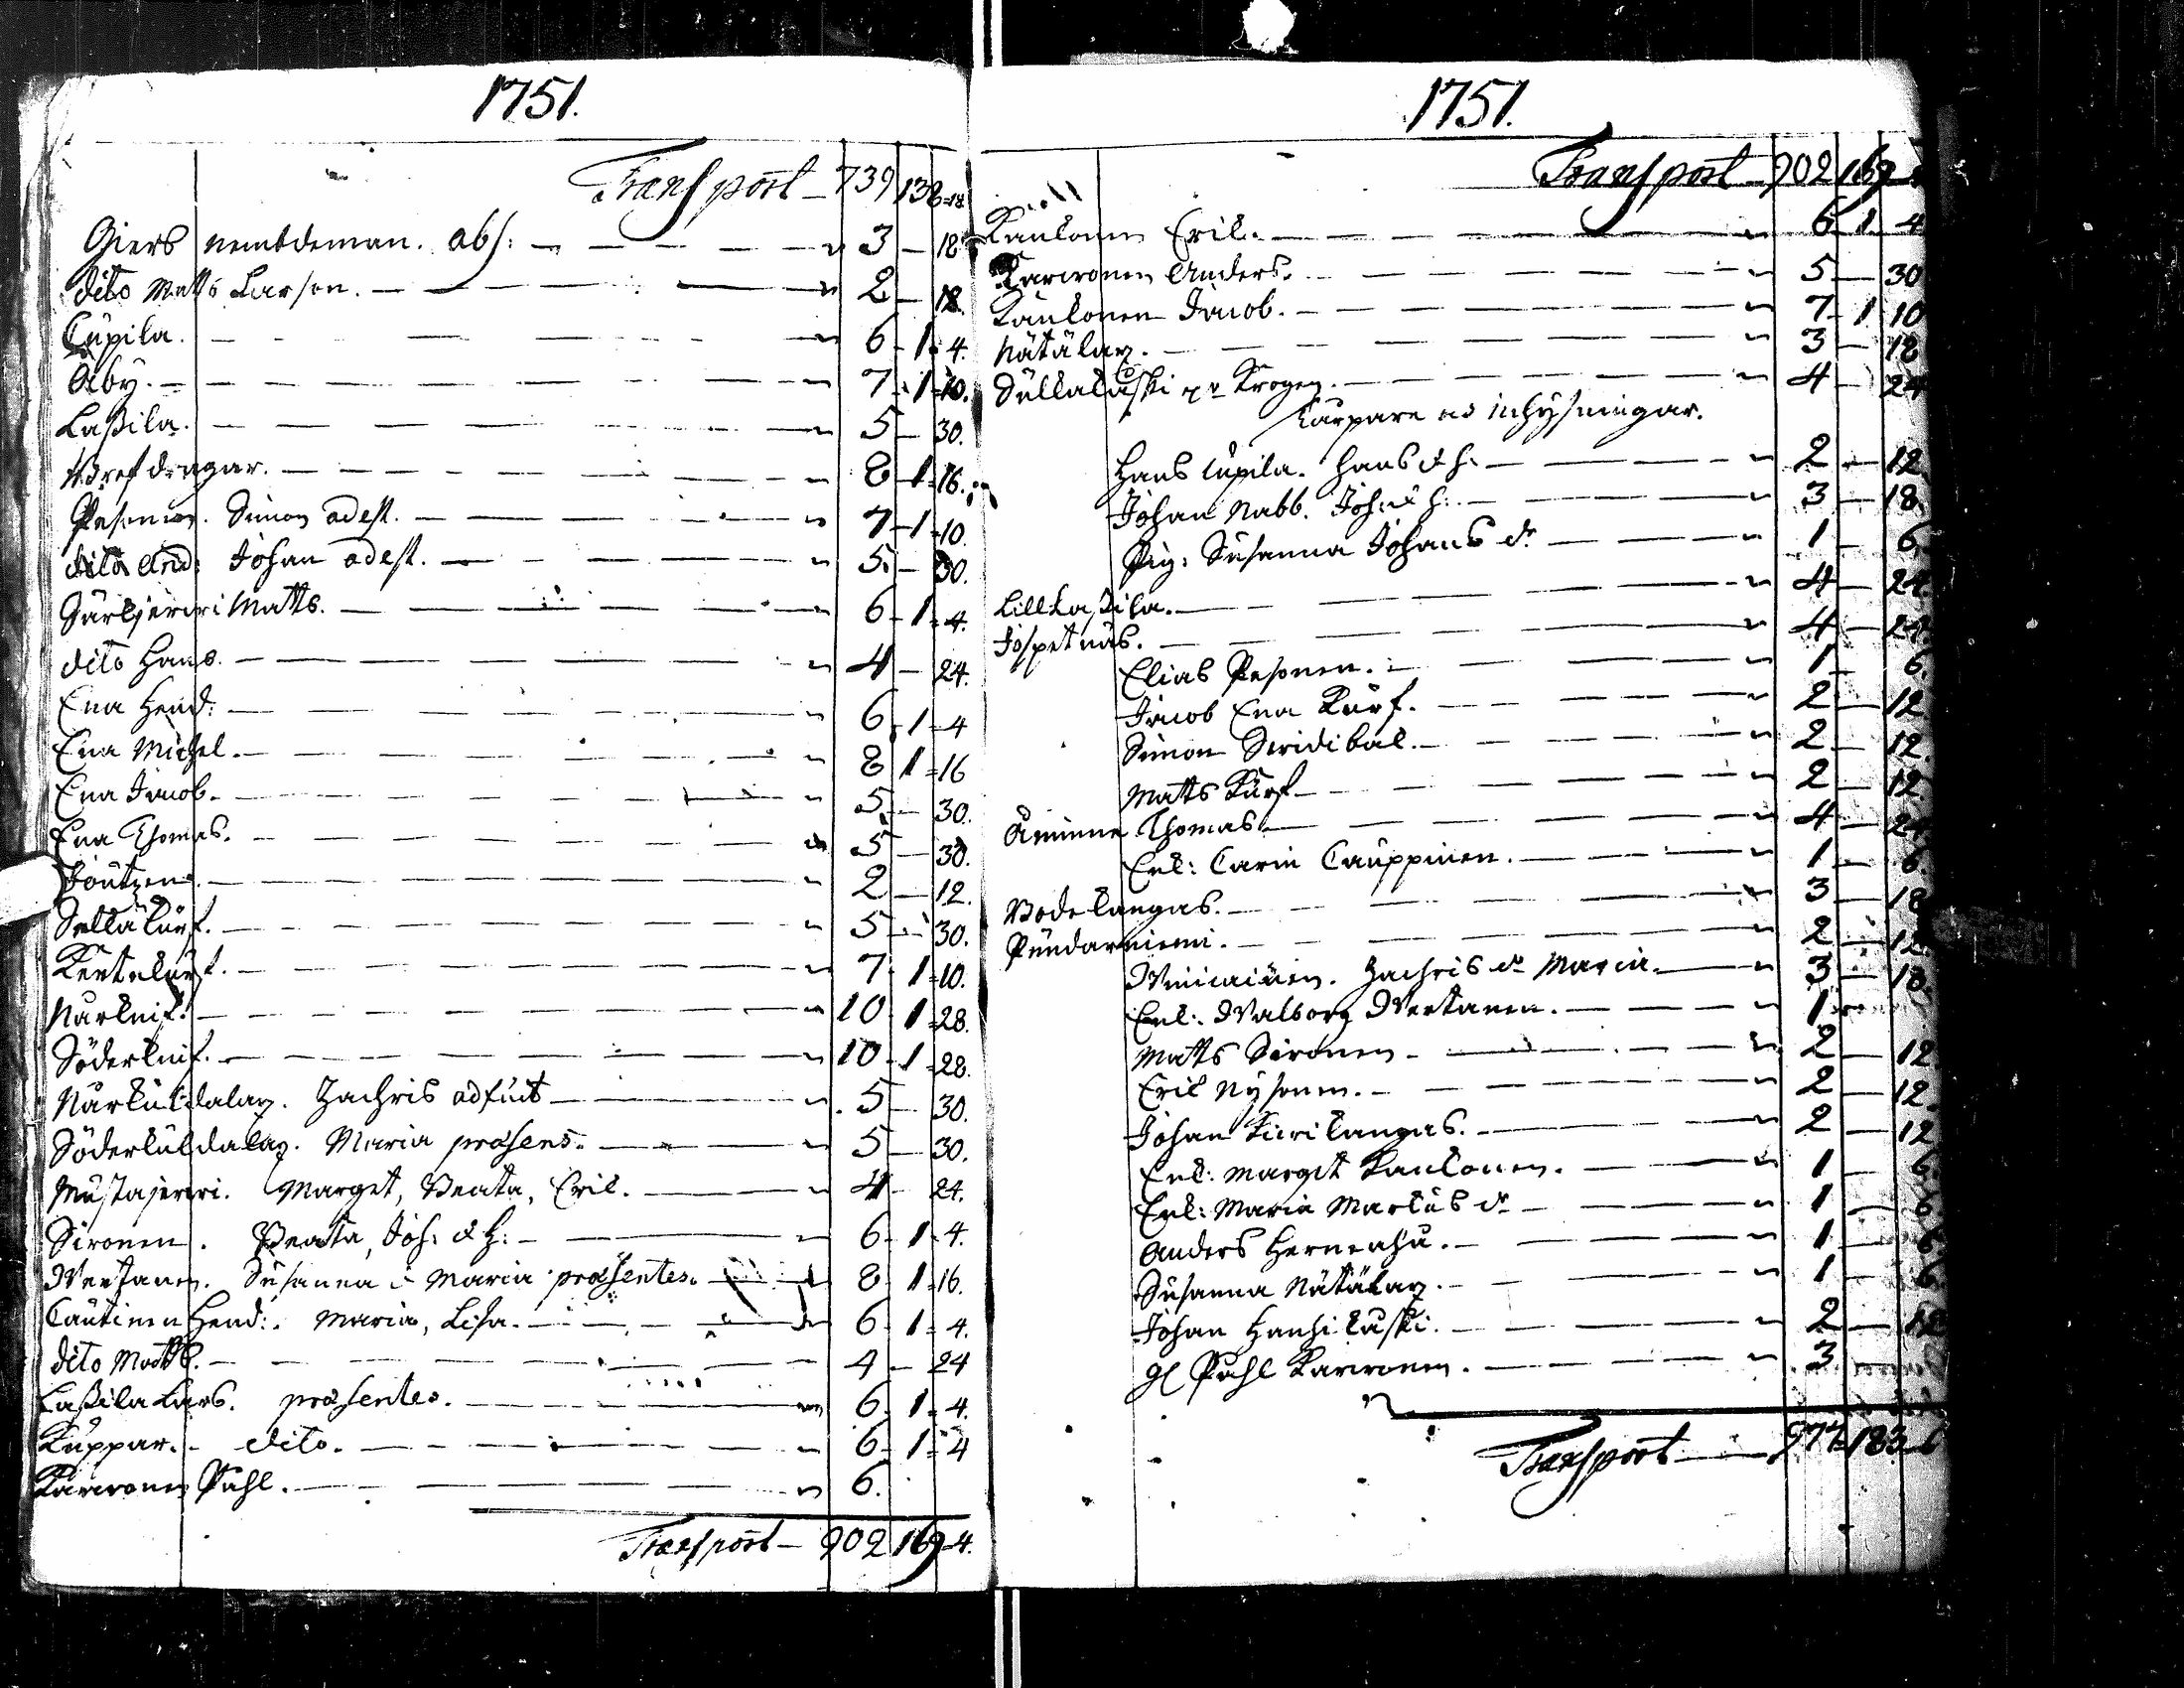 1751.
Transport - 739 138 - 18.
Giers nembdeman. abs: - 3 - 18
dito Matts Larson. - 2 - 12.
Cupila. - 6 - 1 - 4.
Åby. - 7 - 1 - 10.
Laßila. - 5 - 30.
Brefdragar. - 8 - 1 - 16.
Pesonen. Simon adest. - 7 - 1 - 10.
dito And: Johan adest. - 5 - 30.
Särkjerwi Matts. - 6 - 1 - 4.
dito Hans. - 4 - 24.
Ena Hend: - 6 - 1 - 4
Ena Michel. - 8 1 - 16
Ena Jacob. - 5 - 30.
Ena Thomas. - 5 - 30.
Joutzen. - 2 - 12.
Selläkurf. - 5 - 30.
Kertekurf. - 7 - 1 - 10.
Narknif. - 10 1 - 28.
Söderknif. - 10 - 1 - 28.
Närkuldalaz. Zachris adfuit - 5 - 30.
Söderkuldalaz. Maria præsens. - 5 - 30.
Mustajerwi. Marget, Beata, Eric. - 4 - 24.
Sironen. Beata, Joh: & H: - 6 - 1 - 4.
Wertanen. Susanna & Maria præsentes. - 8 1 - 16.
Cautinen Hend: Maria, Lisa. - 6 - 1 - 4.
dito Matts. - 4 - 24
Laßila Lars. præsentes. - 6 - 1 - 4.
Kuppar. - dito. - 6 - 1 - 4
Karwonen Påhl. - 6.
Transport - 902 169 - 4.
1751.
Transport - 902 169
Kaukonen Eric. - 6 - 1 - 4
Karwonen Anders. - 5 - 30
Kaukonen Jacob. - 7 - 1 10
Nätälaz. - 3 - 18
Sullakuski Krogen. - 4 - 24
Torpare och inhysningar.
Hans Cupila. Hans & h: - 2 - 12
Johan Nabb. Joh: & h: - 3 - 18.
Pig: Susanna Johans dr - 1 - 6.
Lill Laßila. - 4 - 24.
Jospetnäs. - 4 - 24.
Elias Pesonen. - 1 - 6.
Jacob Ena Kurf. - 2 - 12
Simon Skridikal. - 2 - 12.
Matts Kurf - 2 - 12.
Åminne Thomas - 4 - 24
Enk: Carin Cauppinen. - 1 - 6.
Bodekangas. - 3 - 18
Pundarniemi. - 2 - 12
Winicainen. Zachris & Maria. - 3 - 18.
Enk: Walborg Wertanen. - 1
Matts Sironen - 2 - 12
Eric Nysonen. - 2 - 12.
Johan Kurikangas. - 2 - 12
Enk: Margit Kaukonen. - 1 - 6
Enk: Maria Markus dr - 1 - 6
Anders Hernesha. - 1 - 6
Susanna Nätälaz. - 1 - 6
Johan Hanhikuski. - 2 - 12
gl Påhl Karwonen. - 3
Transport - 977 183 - 6